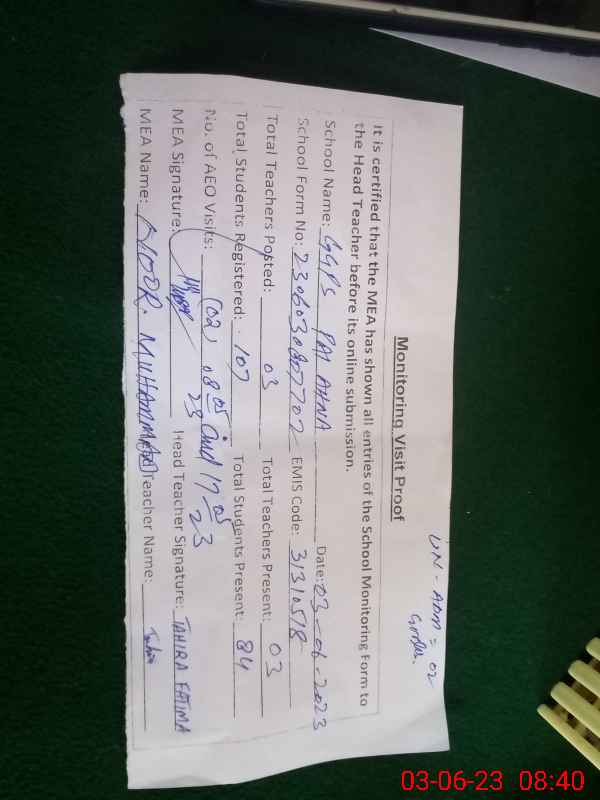 UN-ADM = 02
Grades.
Monitoring Visit Proof
It is certified that the MEA has shown all entries of the School Monitoring Form to
the Head Teacher before its online submission.
School Name: GGPS PAI AHNA Date: 03-06-2023
School Form No: 2306030807707 EMIS Code: 31310518
Total Teachers Posted: 03 Total Teachers Present: 03
Total Students Registered: 107 Total Students Present: 84
No. of AEO Visits: (02) 08 05 23 and 17 05 23
MEA Signature: Head Teacher Signature: TAHIRA FATIMA
MEA Name: NOOR. MUHAMMAD Teacher Name: Tahira
03-06-23 08:40